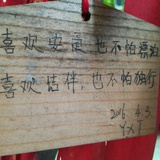 喜欢安定 也不怕漂泊
喜欢结伴，也不怕独行
2016.4.5
YXY